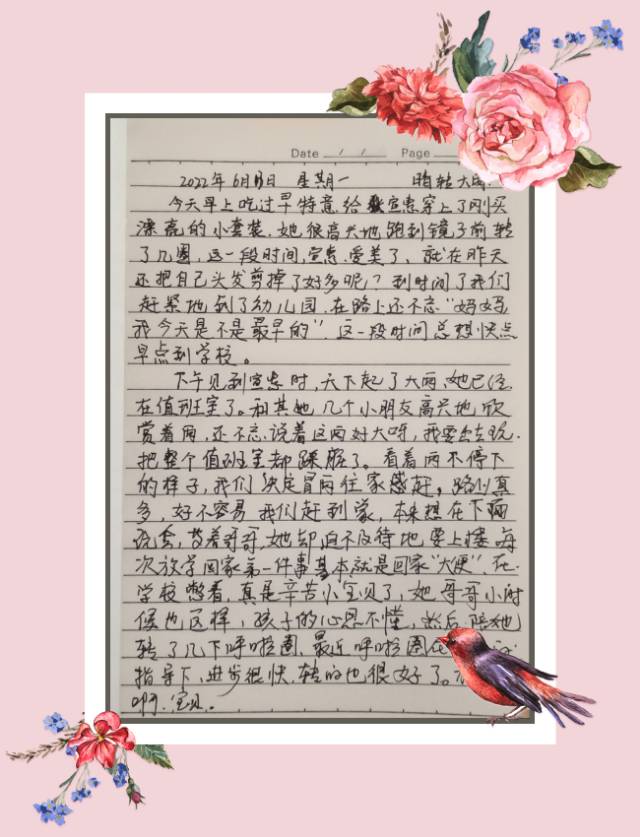 Date / / Page
2022年6月13日 星期一 晴转大雨
今天早上吃过早特意给宣惠穿上了刚买
漂亮的小套装,她很高兴地跑到镜子前转
了几圈,这一段时间,宣惠,爱美了,就在昨天
还把自己头发剪掉了好多呢?到时间了我们
赶紧地到了幼儿园,在路上还不忘“妈妈
我今天是不是最早的”,这一段时间总想快点
早点到学校。
下午见到宣惠时,天下起了大雨,她已经
在值班室了。和其她几个小朋友高兴地欣
赏着雨,还不忘,说着这雨好大呀,我要出去玩,
把整个值班室都踩脏了。看着雨不停下
的样子,我们决定冒雨往家感赶,路以真
多,好不容易我们赶到家,本来想在下面
玩会,等着哥哥,她却迫不及待地,要上楼每
次放学回家第一件事基本就是回家“大便”在
学校憋着,真是辛苦小宝贝了,她哥哥小时
候也这样,孩子的心思不懂,然后陪她
转了几下呼啦圈,最近呼啦圈在
指导下,进步很快,转的也很好了。
啊,宝贝。